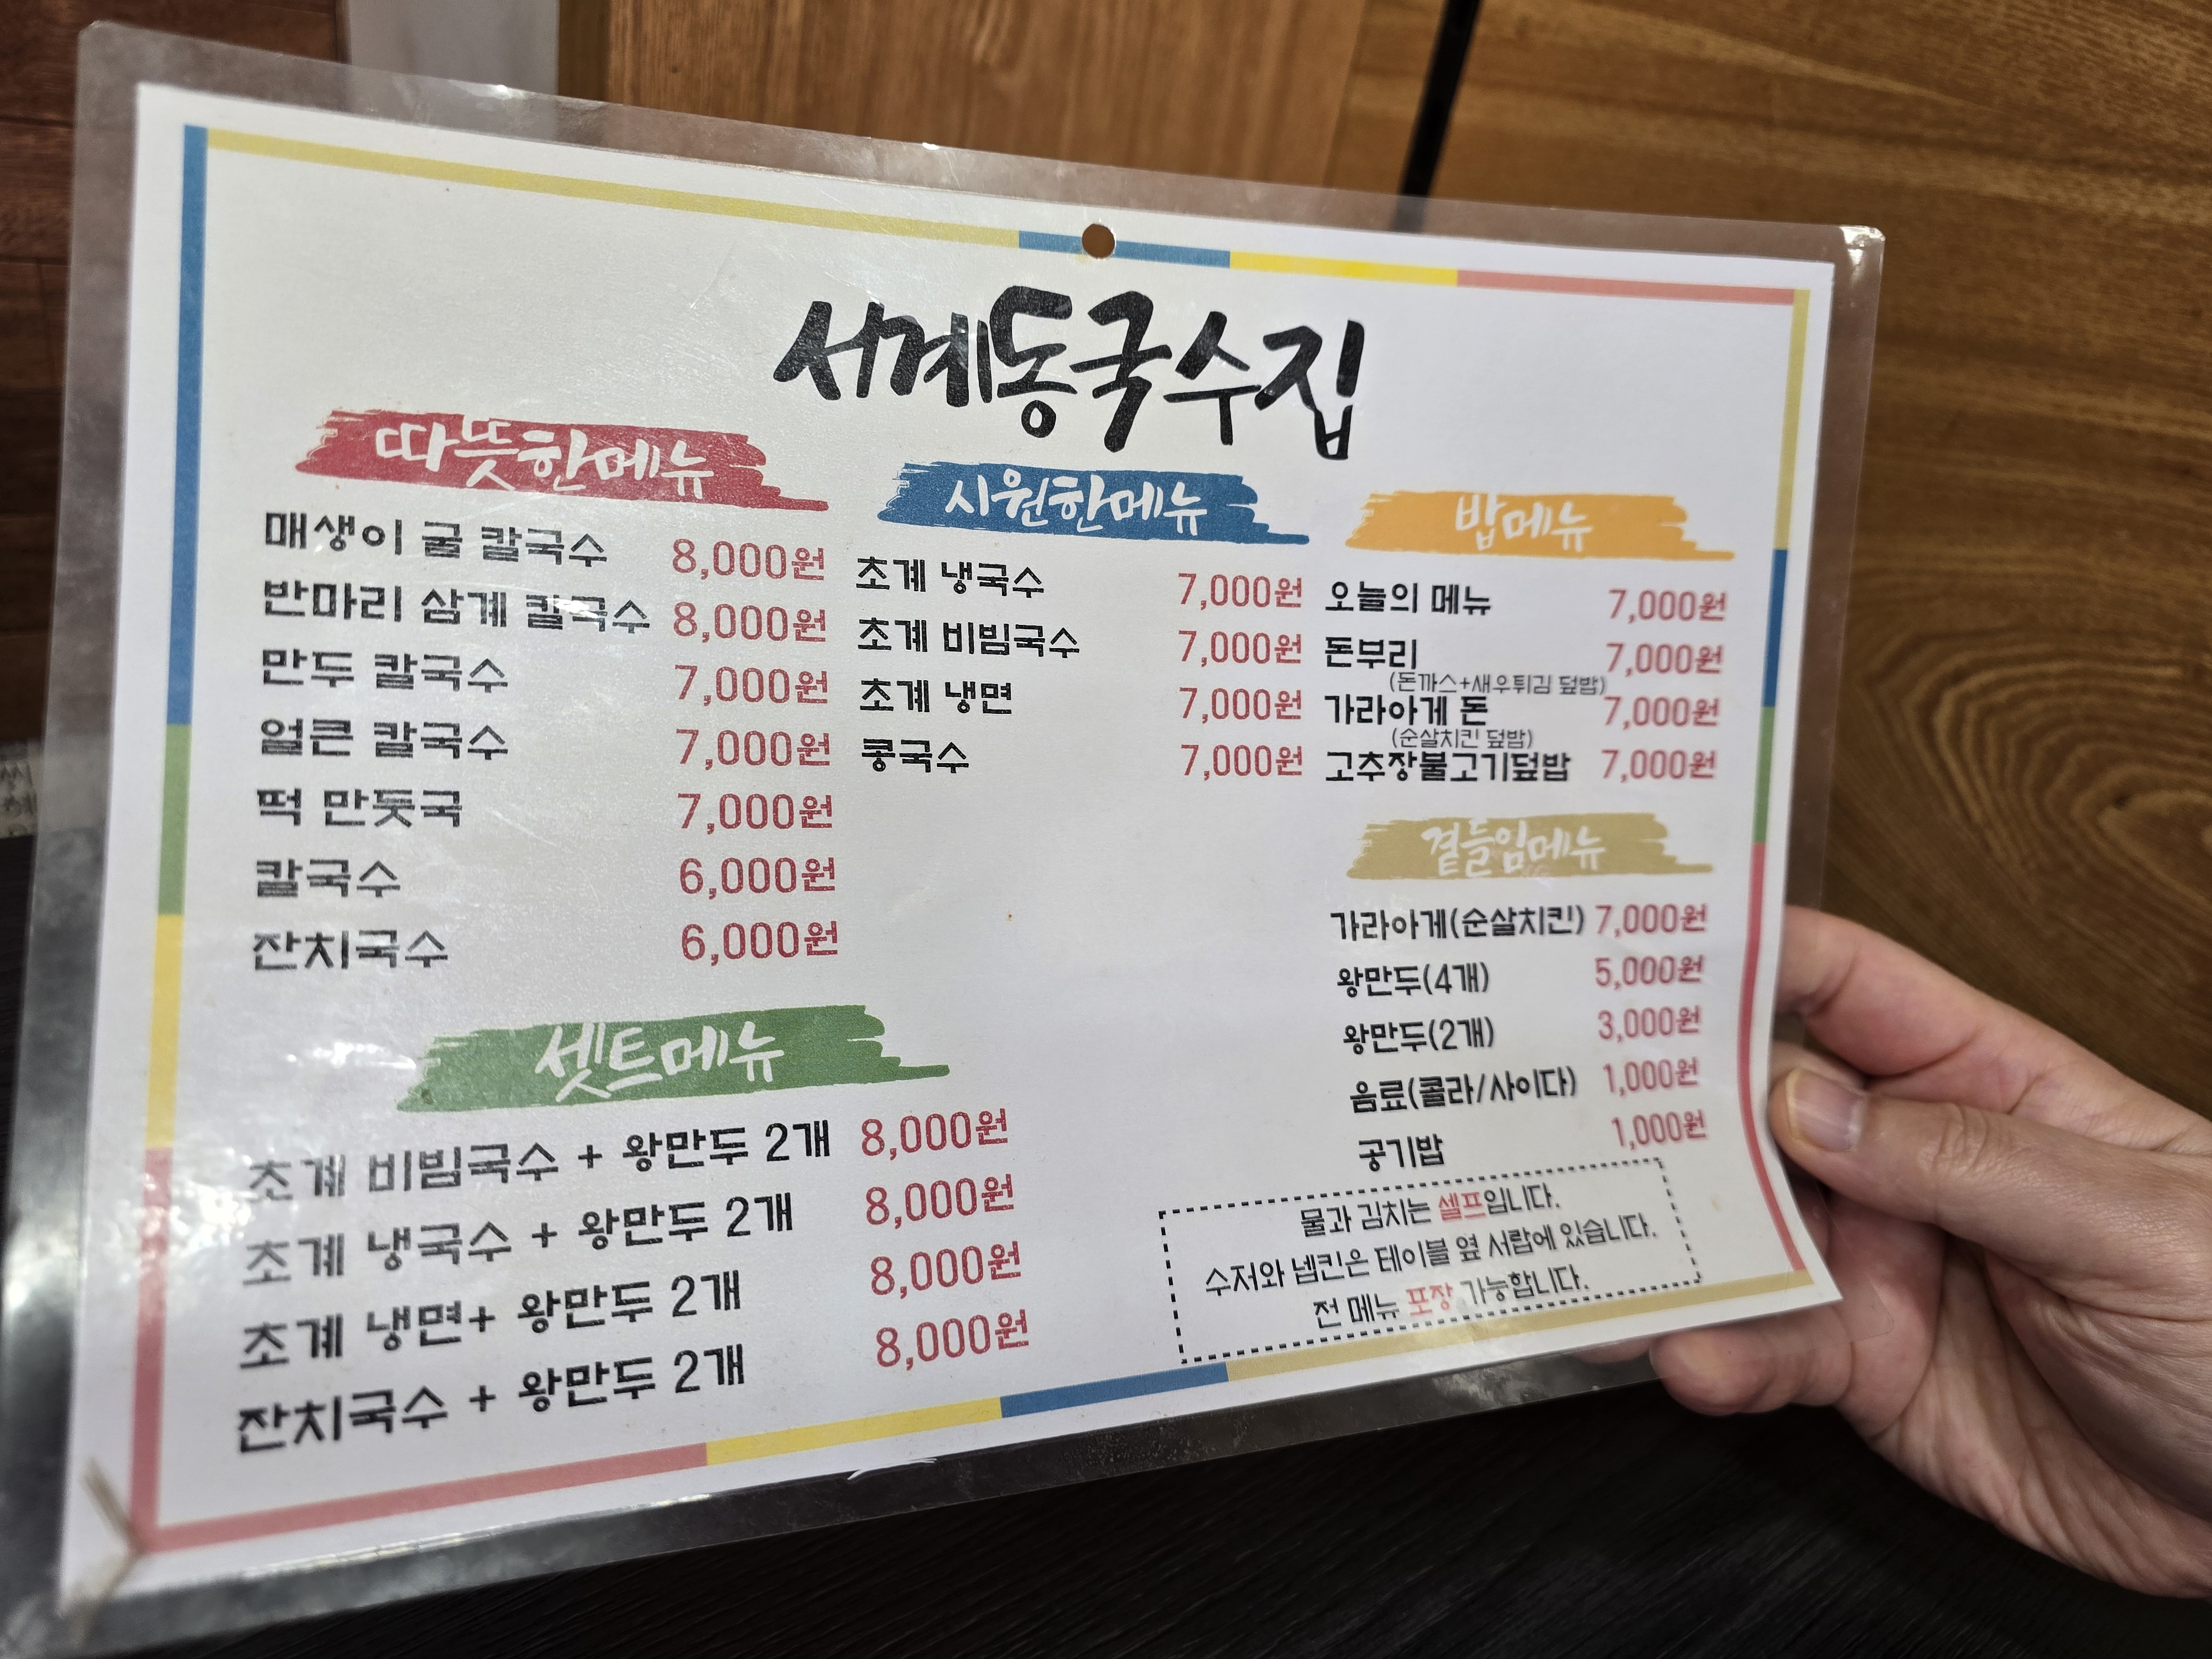 서계동국수집
따뜻한메뉴
매생이 굴 칼국수 8,000원
반마리 삼계 칼국수 8,000원
만두 칼국수 7,000원
얼큰 칼국수 7,000원
떡 만둣국 7,000원
칼국수 6,000원
잔치국수 6,000원
시원한메뉴
초계 냉국수 7,000원
초계 비빔국수 7,000원
초계 냉면 7,000원
콩국수 7,000원
밥메뉴
오늘의 메뉴 7,000원
돈부리 7,000원
(돈까스+새우튀김 덮밥)
가라아게 돈 7,000원
(순살치킨 덮밥)
고추장불고기덮밥 7,000원
곁들임메뉴
가라아게(순살치킨) 7,000원
왕만두(4개) 5,000원
왕만두(2개) 3,000원
음료(콜라/사이다) 1,000원
공기밥 1,000원
셋트메뉴
초계 비빔국수 + 왕만두 2개 8,000원
초계 냉국수 + 왕만두 2개 8,000원
초계 냉면+ 왕만두 2개 8,000원
잔치국수 + 왕만두 2개 8,000원
물과 김치는 셀프입니다.
수저와 넵킨은 테이블 옆 서랍에 있습니다.
전 메뉴 포장 가능합니다.